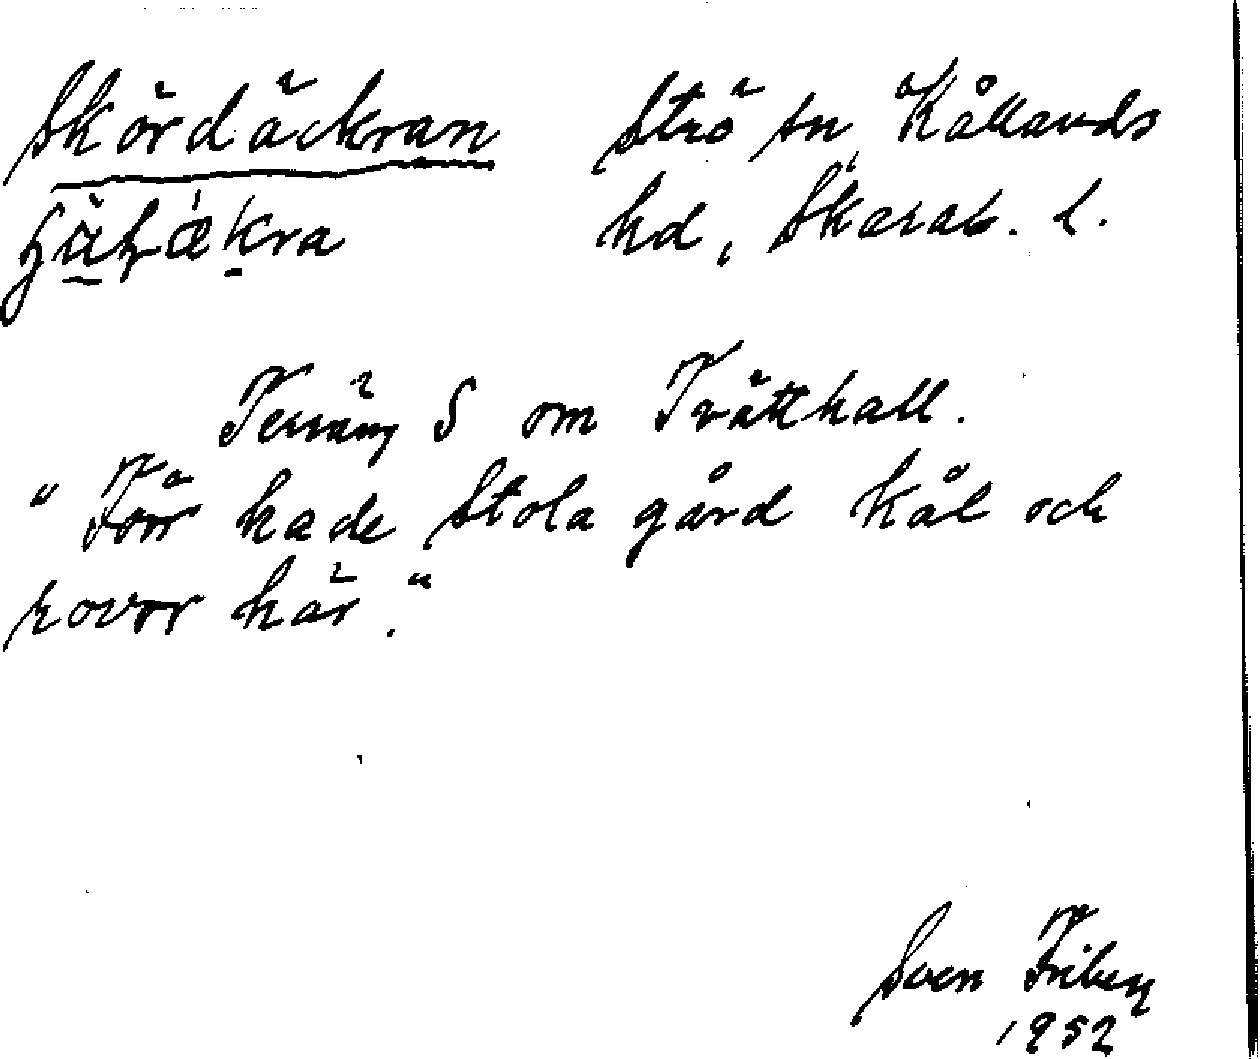 Skördäckran Strö sn, Kållands
hd, Skarab. l.
Terräng S om Tvätthall.
"Förr hade Stola gård kål och
rovor här."
Sven Friberg
1952